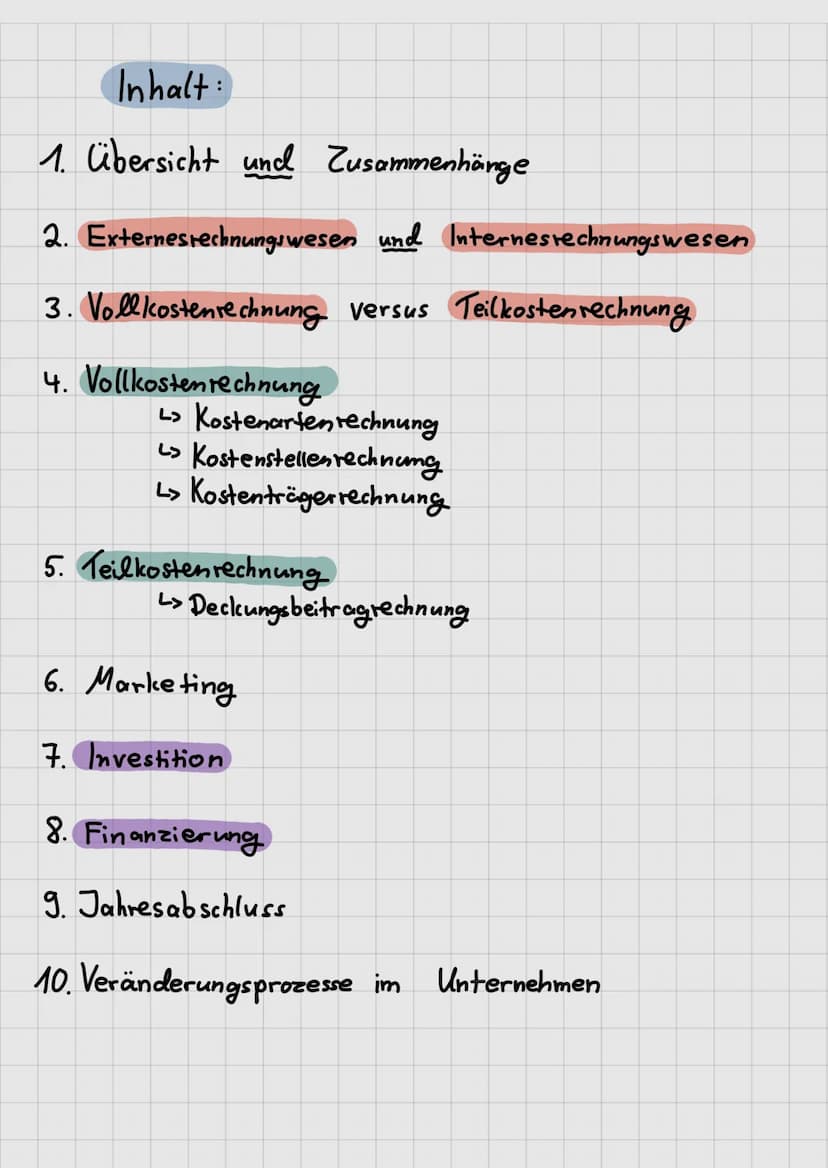 Inhalt:
1. Übersicht und Zusammenhänge
2. Externesrechnungswesen und Internesrechnungswesen
3. Vollkostenrechnung versus Teilkostenrechnung
4. Vollkostenrechnung
↳ Kostenartenrechnung
↳ Kostenstellenrechnung
↳ Kostenträgerrechnung
5. Teilkostenrechnung
↳ Deckungsbeitragrechnung
6. Marketing
7. Investition
8. Finanzierung
9. Jahresabschluss
10. Veränderungsprozesse im Unternehmen